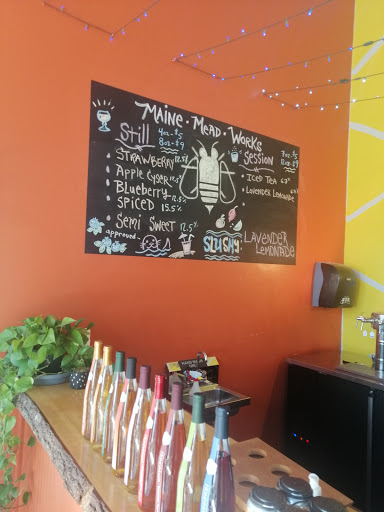 MAINE • MEAD • WORKS
Still 4oz - $5
8oz - $9
• STRAWBERRY 12.5%
• Apple Cyser
• Blueberry 12.5%
• SPICED 15.5%
• SEMI SWEET 12.5%
approved
SESSION
• ICED TEA
• LAVENDER LEMONADE
SLUSHY:
LAVENDER
LEMONADE